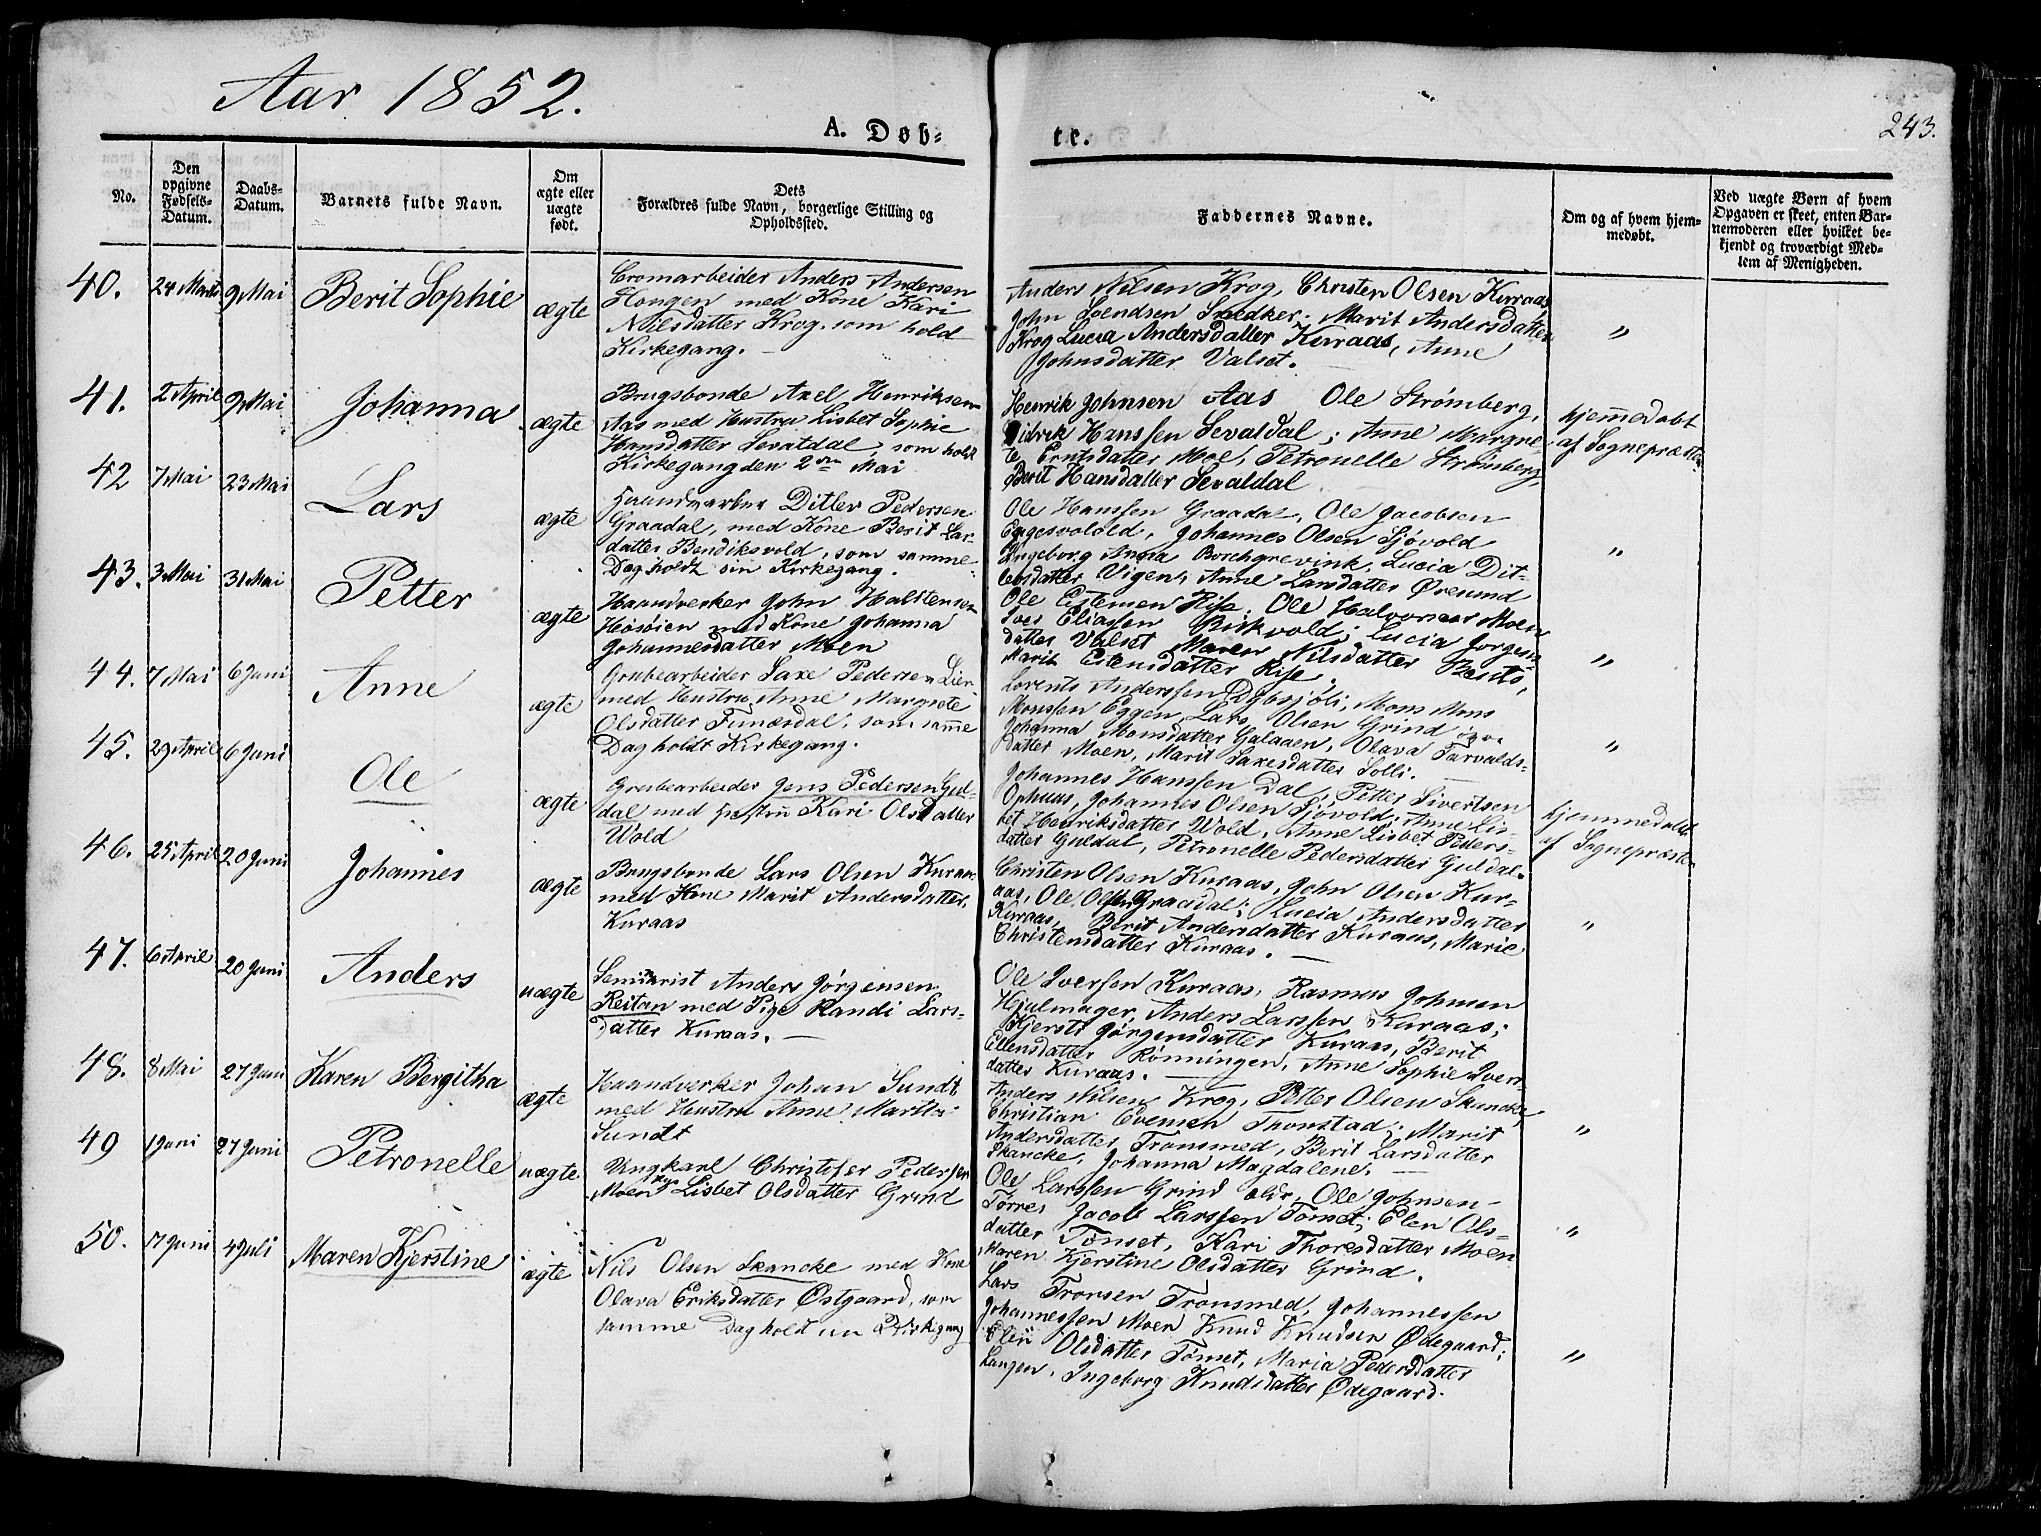 Aar 1852.
A. Døb-
te.
243.
No.
Den opgivne Fødsels-Datum.
Daabs-Datum.
Barnets fulde Navn.
Om ægte eller uægte født.
Dets
Forældres fulde Navn, borgerlige Stilling og
Opholdssted.
Faddernes Navne.
Om og af hvem hjem-
medøbt.
Ved uægte Børn af hvem
Opgaven er skeet, enten Bar-
nemoderen eller hvilket be-
kjendt og troværdigt Med-
lem af Menigheden.
40. 24 Marts 9 Mai Berit Sophie ægte
Anders Andersen
med Kone Kari
Nilsdatter Krog. som hold
Kirkegang. —
Anders Nilsen Krog, Christen Olsen Kuraas
John Svendsen Snedker; Marit Andersdatter
Krog Lucia Andersdatter Kuraas, Anne
Johnsdatter Valset. —
"
41. 2 April 9 Mai Johanna ægte
Brugsbonde Axel Henriksen
Aas med Hustru Lisbet Sophie
Hansdatter Sevatdal, som holdt
Kirkegang den 2den Mai
Henrik Johnsen Aas Ole Strømberg,
Didrik Hanssen Sevaldal; Anne Margre-
te Erntsdatter Moe, Petronelle Strømberg,
Berit Hansdatter Sevaldal
hjemmedøbt
af Sognepræsten
42 7 Mai 23 Mai Lars ægte
Haandverker Ditlev Pedersen
Graadal, med Kone Berit Lar-
datter Bendiksvold, som samme
Dag holdt sin Kirkegang.
Ole Hanssen Graadal, Ole Jacobsen
Engesvolded, Johannes Olsen Sjovold
Ingeborg Anna Borchgrevink, Lucia Dit-
levsdatter Vigen, Anne Larsdatter Øresund
"
43. 3 Mai 31 Mai Petter ægte
Haandverker John Halstensen
Høsøien med Kone Johanna
Johannesdatter Moen
Ole Estensen Rise, Ole Halvorsen Moen
Iver Eliassen Birkvold; Lucia Jorgens-
datter Valset Maren Nilsdatter
Marit Estensdatter Rise.
"
44. 7 Mai 6 Juni Anne ægte
Grubearbeider Saxe Pedersen Lien
med Hustru Anne Margrete
Olsdatter Funæsdal, som samme
Dag holdt Kirkegang.
Lorents Anderssen Dybsjøli, Mons Mons
Monssen Eggen Lars Olsen Grind
Johanna Monsdatter Galaaen, Olava Tarvalds-
datter Moen, Marit Saxesdatter Solli. —
"
45. 29 April 6 Juni Ole ægte
Grubearbeider Jens Pedersen Gul-
dal med Kari Olsdatter
Wold
Johannes Hanssen Dal, Petter Sivertsen
Ophuus, Johannes Olsen Sjøvold; Anne Lis-
bet Henriksdatter Wold, Anne Lisbet Peders-
datter Guldal, Petronelle Pedersdatter Guldal.
hjemmedøbt
af Sognepræsten
46. 25 April 20 Juni Johannes ægte
Brugsbonde Lars Olsen Kuraas
med Kone Marit Andersdatter
Kuraas
Christen Olsen Kuraas, John Olsen Kur-
aas, Ole Olsen Graadal; Lucia Andersdatter
Kuraas, Berit Andersdatter Kuraas, Marie
Christensdatter Kuraas. —
"
47. 6 April 20 Juni Anders uægte
Seminarist Anders Jørgensen
Reitan med Pige Randi Lars-
datter Kuraas. —
Ole Iversen Kuraas, Rasmus Johnsen
Hjulmager, Anders Larssen Kuraas;
Kjersti Jørgensdatter Kuraas, Berit
Ellensdatter Rønningen, Anne Sophie Iver-
datter Kuraas. —
48. 8 Mai 27 Juni Karen Bergitha ægte
Haandverker Johan Sundt
med Hustru Anne Martha
Sundt
Anders Nilsen Krog, Petter Olsen Skancke,
Christian Evensen Thonstad; Marit
Andersdatter Tronsmed, Berit Larsdatter
Skancke, Johanna Magdalene. —
"
49 1 Juni 27 Juni Petronelle uægte
Ungkarl Christofer Pedersen
Moen Lisbet Olsdatter Grind
Ole Larssen Grind ældr. Ole Johnsen
Torres Jacob Larssen Tømset; Elen Ols-
datter Tomset, Kari Thoresdatter Moen
Maren Kjerstine Olsdatter Grind.
"
50. 7 Juni 4 Juli Maren Kjerstine ægte
Nils Olsen Skancke med Kone
Olava Eriksdatter Østgaard, som
samme Dag holdt sin Kirkegang
Lars Tronsen Tronsmed, Johannessen
Johannessen Moen Knud Knudsen Ødegaard;
Elen Olsdatter Tømset, Maria Pedersdatter
Langen, Ingeborg Knudsdatter Ødegaard.
"